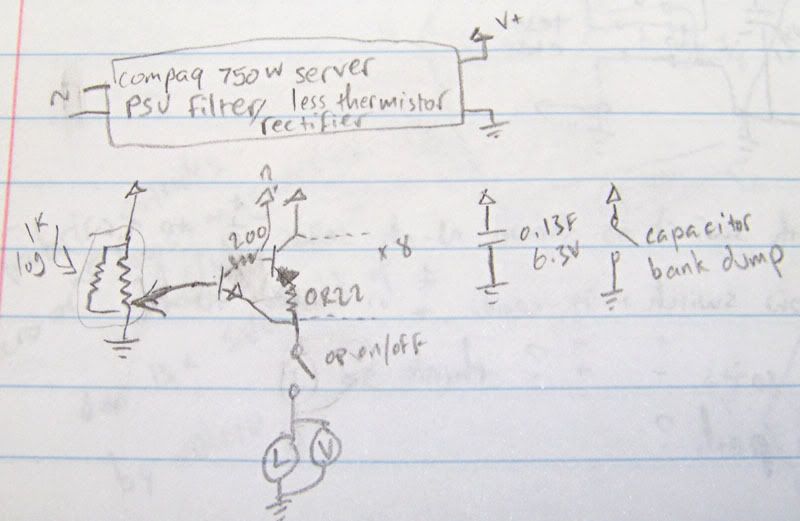 V+
compaq 750W server
PSU filter, less thermistor
rectifier
~
1K
log
200
x 8
0R22
op on/off
L
V
0.13F
6.3V
capacitor
bank dump